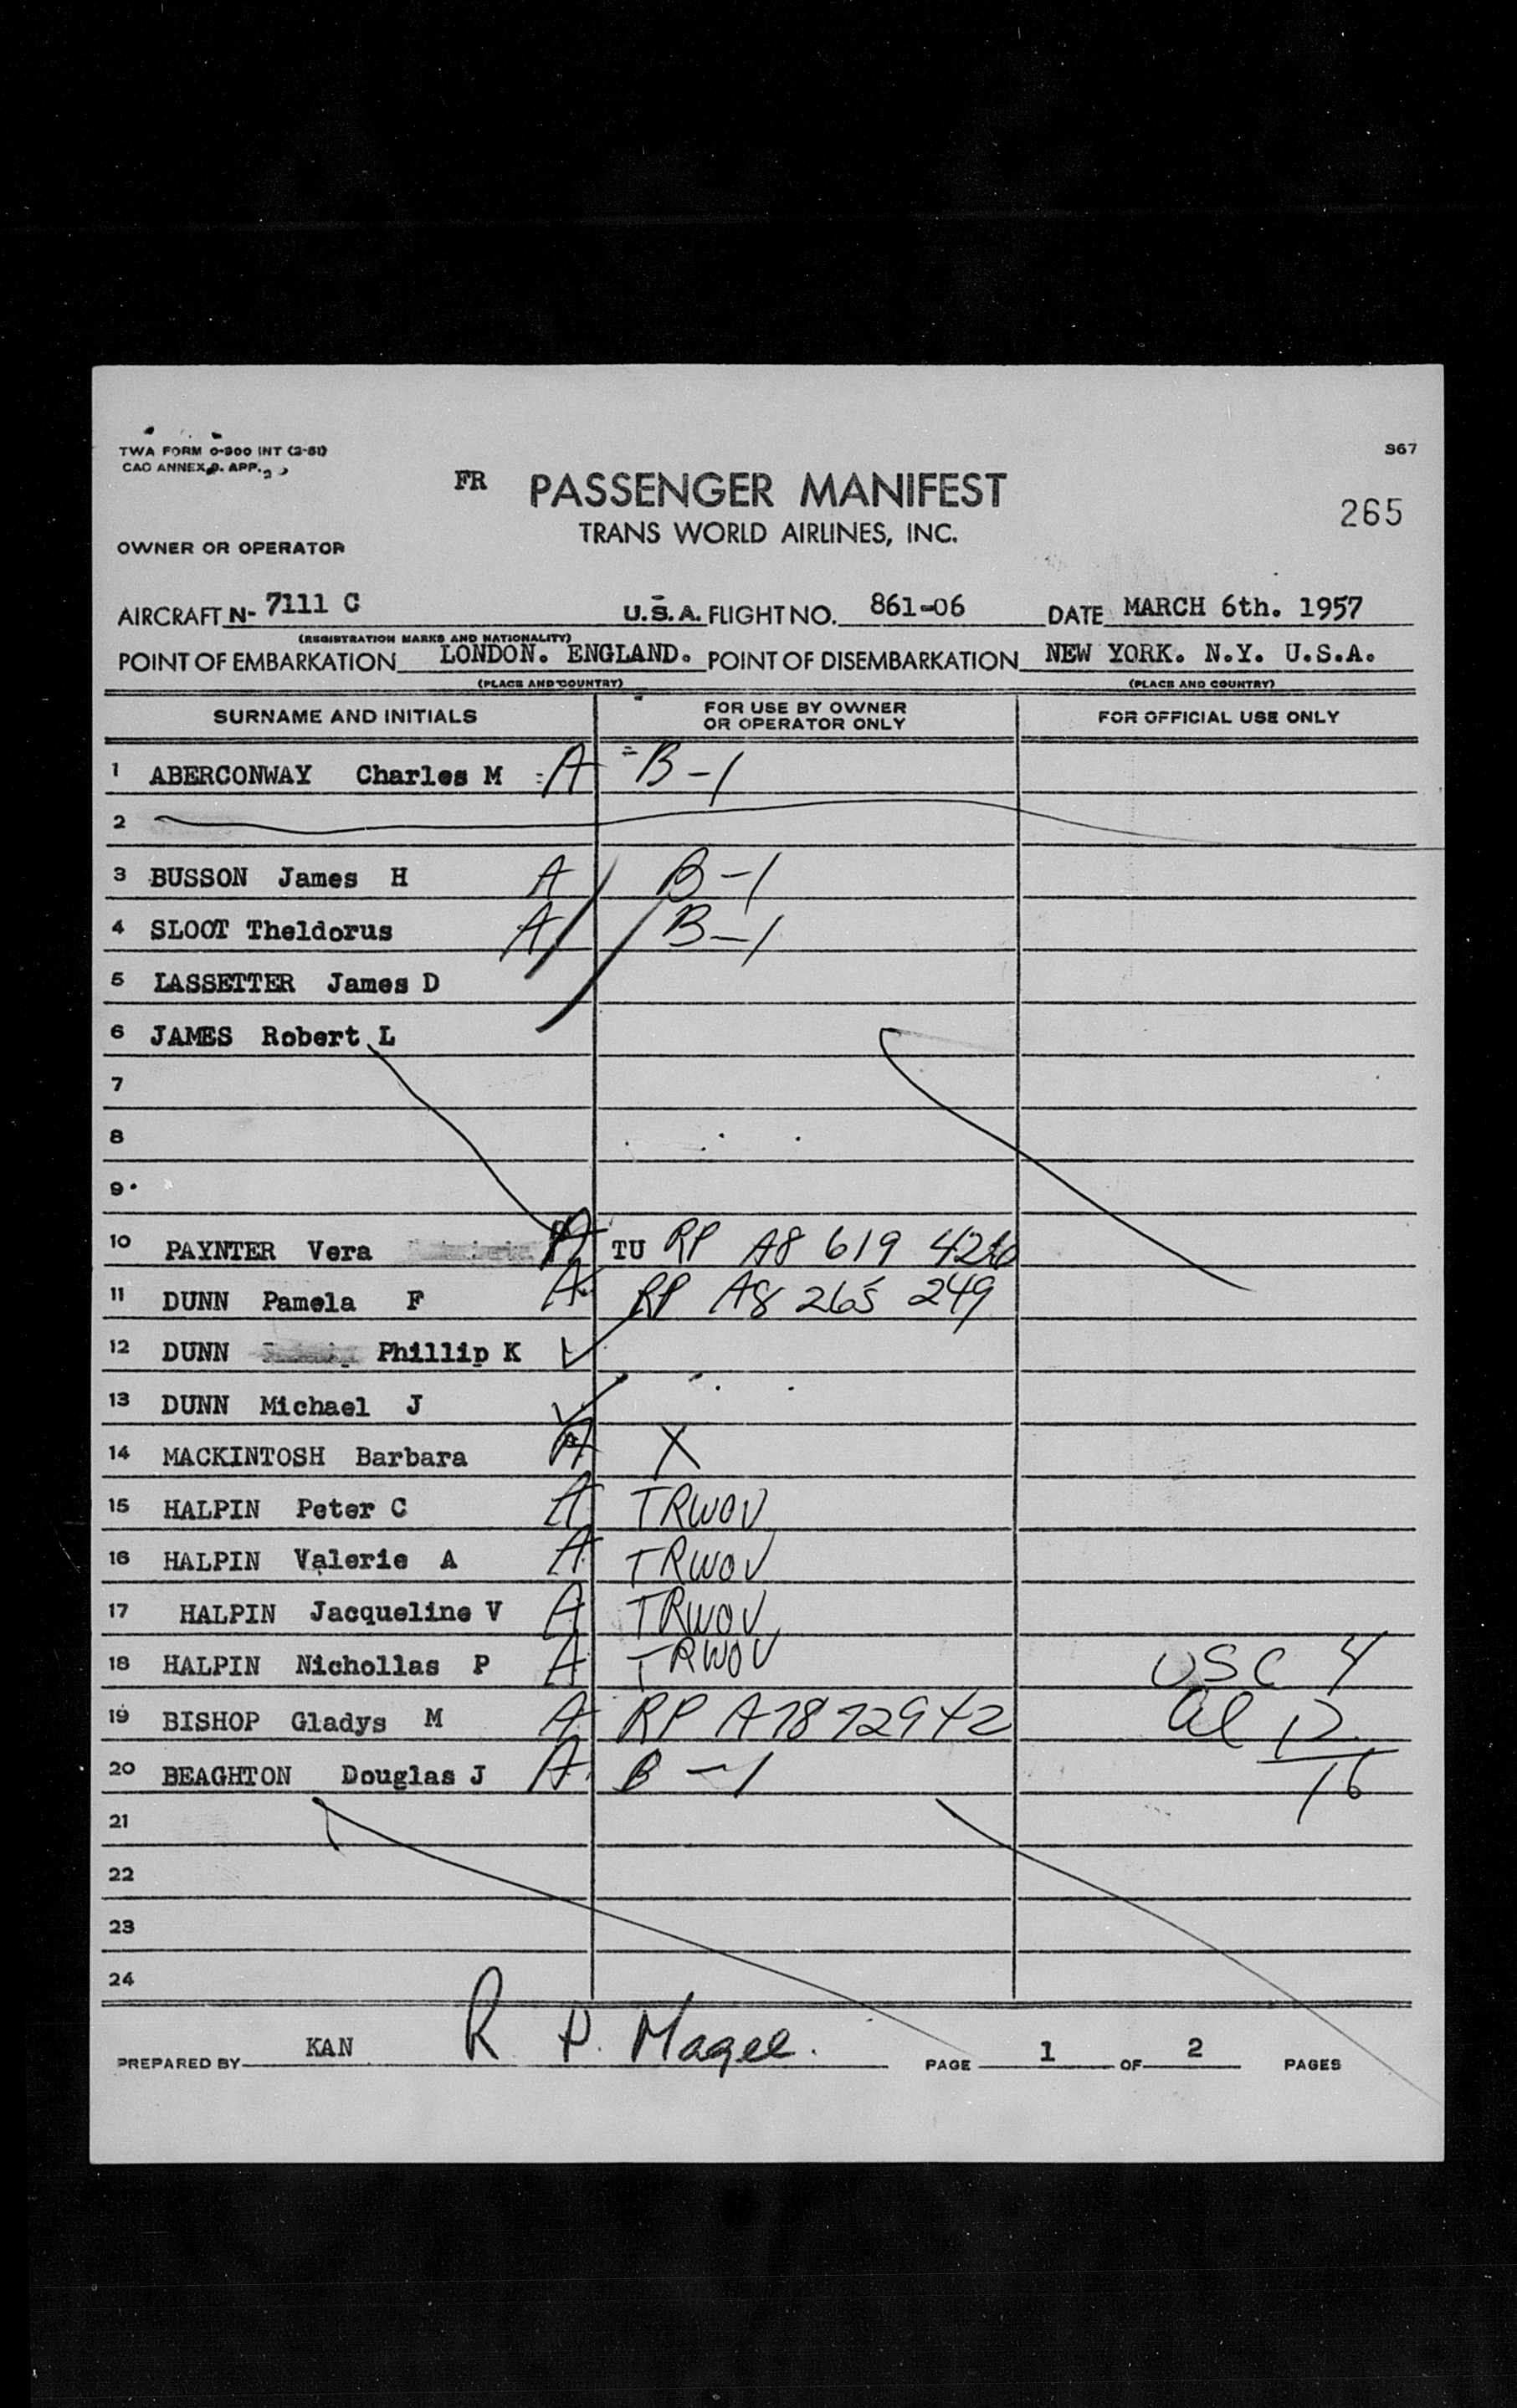 TWA FORM O-900 INT (2-51)
CAO ANNEX 9. APP.
S67
FR PASSENGER MANIFEST
265
TRANS WORLD AIRLINES, INC.
OWNER OR OPERATOR
AIRCRAFT N- 7111 C U.S.A. FLIGHT NO. 861-06 DATE MARCH 6th. 1957
(REGISTRATION MARKS AND NATIONALITY)
POINT OF EMBARKATION LONDON. ENGLAND. POINT OF DISEMBARKATION NEW YORK. N.Y. U.S.A.
(PLACE AND COUNTRY) (PLACE AND COUNTRY)
SURNAME AND INITIALS FOR USE BY OWNER OR OPERATOR ONLY FOR OFFICIAL USE ONLY
1 ABERCONWAY Charles M A B-1
2
3 BUSSON James H A B-1
4 SLOOT Theldorus A B-1
5 LASSETTER James D
6 JAMES Robert L
7
8
9
10 PAYNTER Vera A TU RP A8 619
11 DUNN Pamela F A RP A8 265 249
12 DUNN Phillip K
13 DUNN Michael J
14 MACKINTOSH Barbara A X
15 HALPIN Peter C A TRWOV
16 HALPIN Valerie A A TRWOV
17 HALPIN Jacqueline V A TRWOV
18 HALPIN Nichollas P A TRWOV USC 4
19 BISHOP Gladys M A RP A7872942 al 12
20 BEAGHTON Douglas J A B-1 16
21
22
23
24
PREPARED BY KAN R P. Magee. PAGE 1 OF 2 PAGES